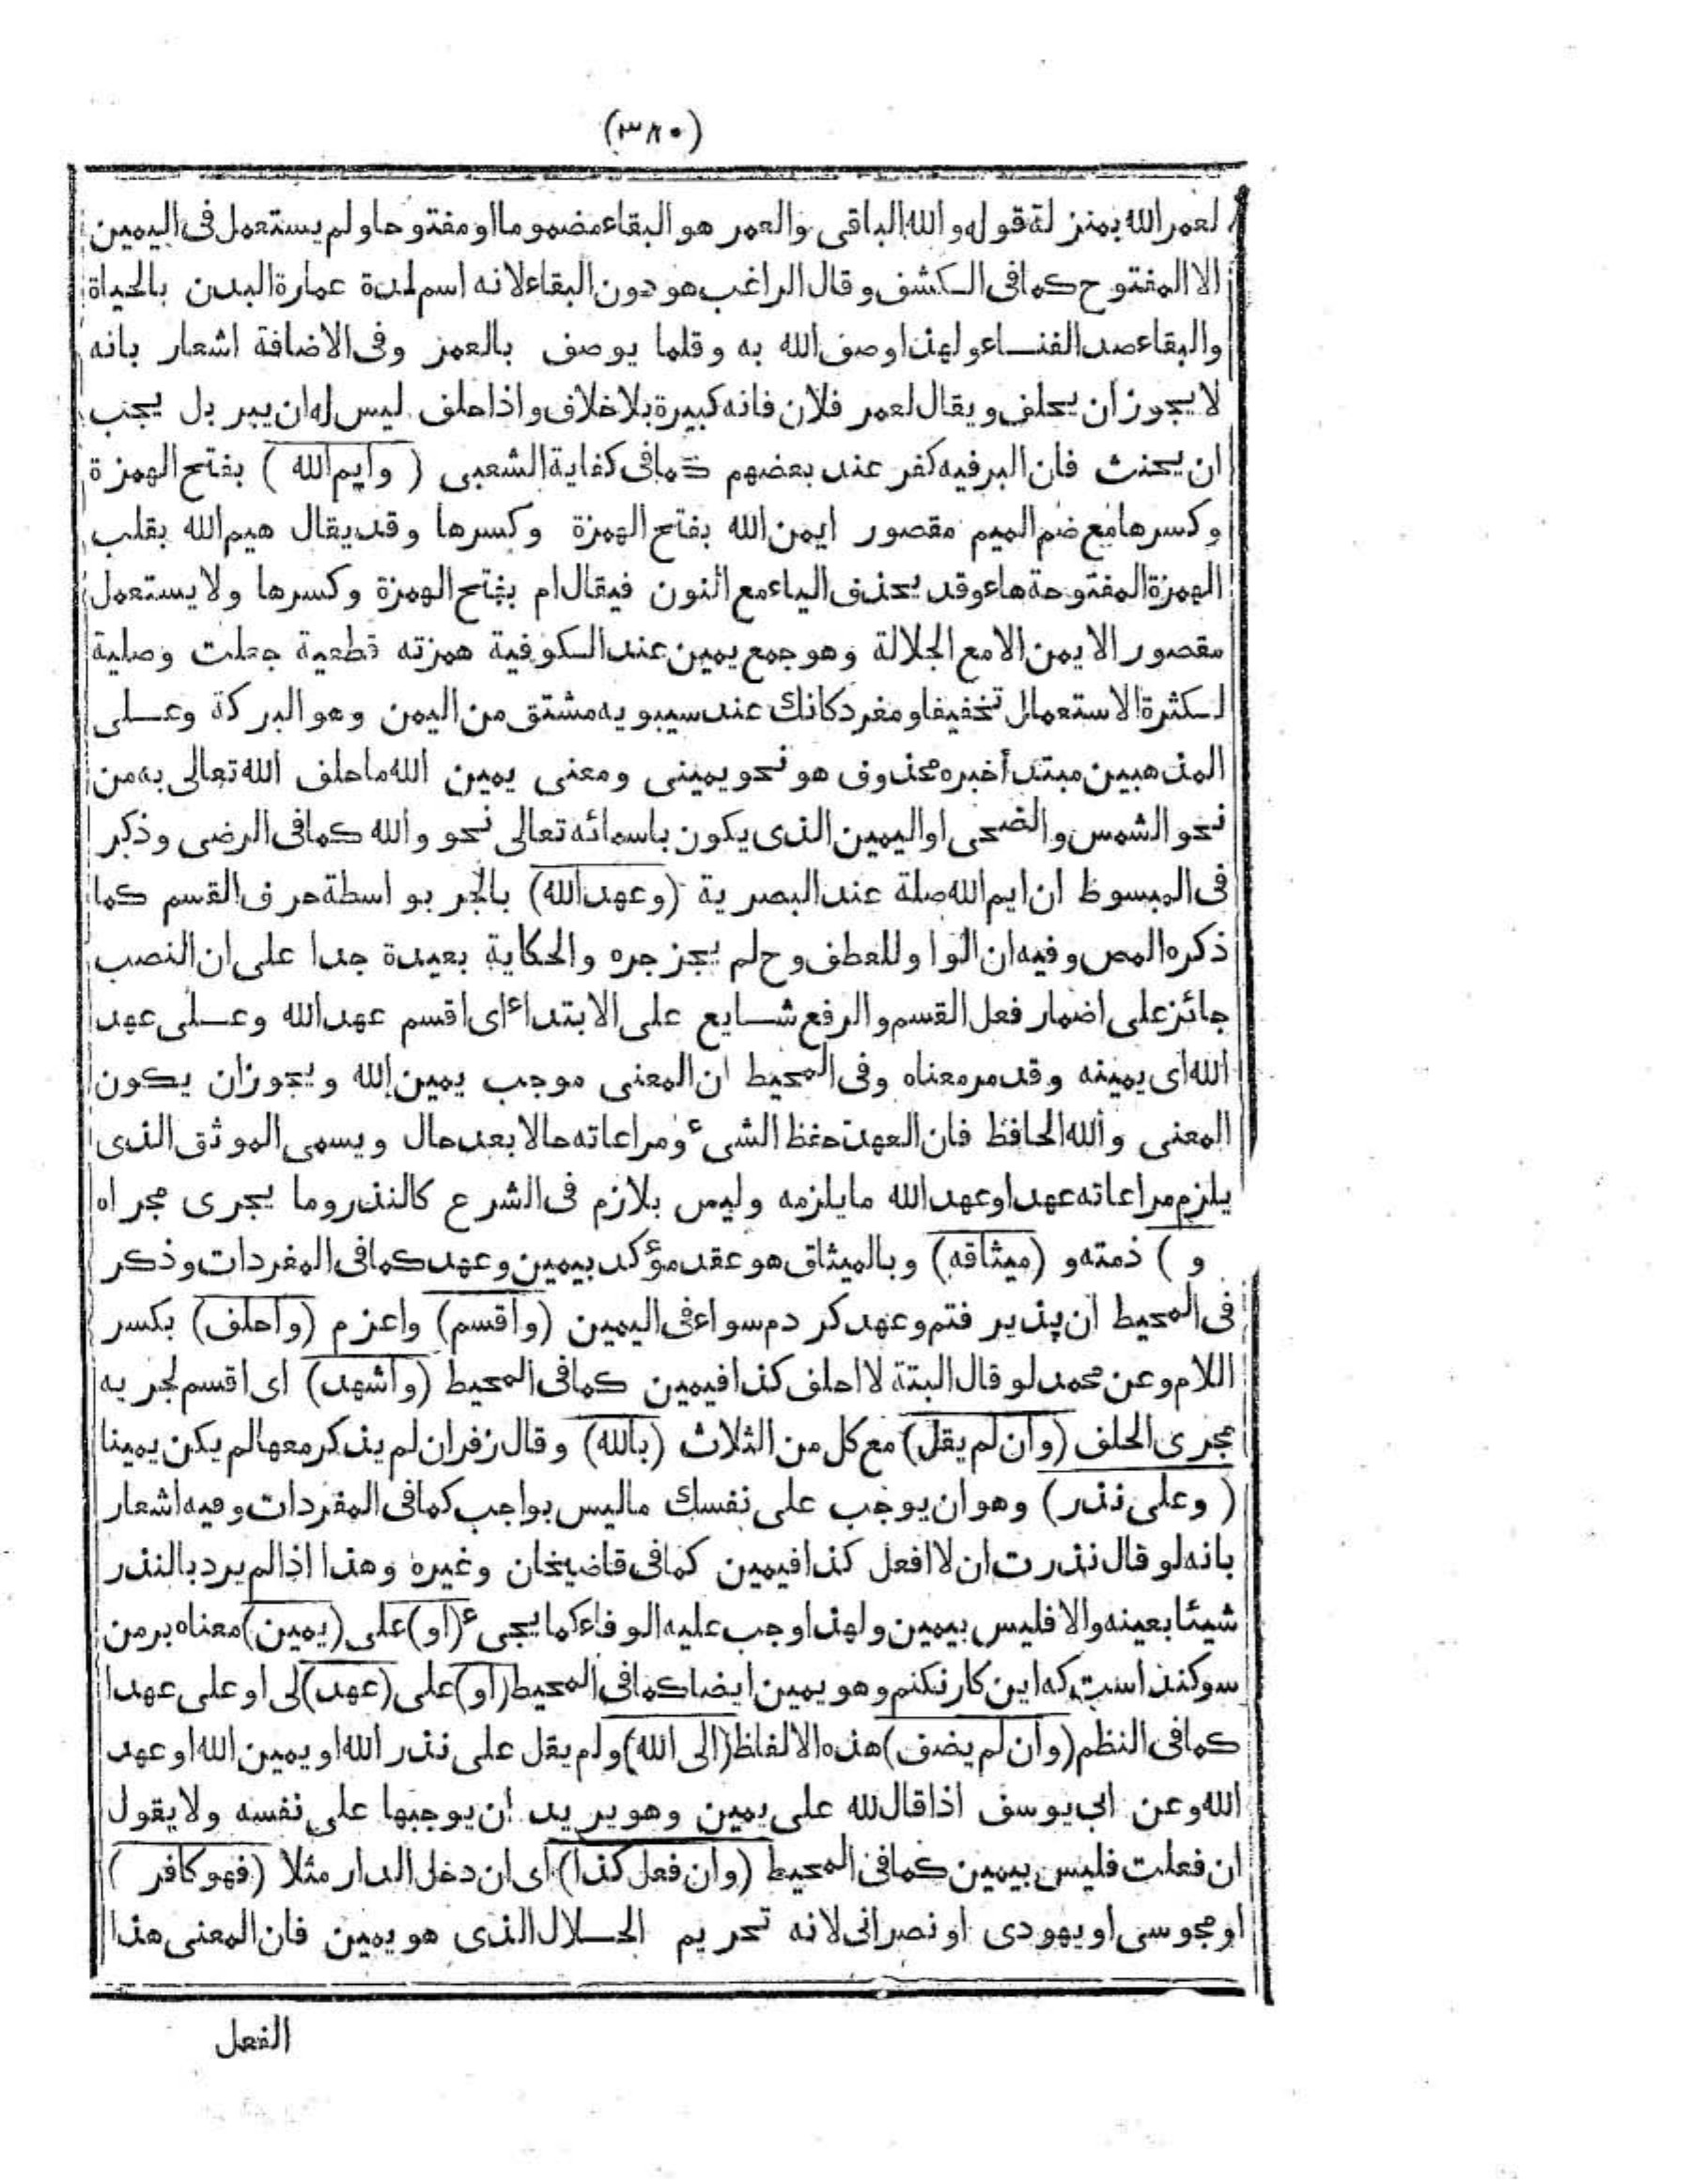 (٣٨٠)
لعمر الله بمنزلة قوله والله الباقى والعمر هو البقاء مضموما او مفتوحا ولم يستعمل فى اليمين
الا المفتوح كما فى الكشف وقال الراغب هو دون البقاء لانه اسم لمدة عمارة البدن بالحياة
والبقاء ضد الفناء ولهذا وصف الله به وقلما يوصف بالعمر وفى الاضافة اشعار بانه
لا يجوز ان يحلف ويقال لعمر فلان فانه كبيرة بلا خلاف واذا حلف ليس له ان يبر بل يجب
ان يحنث فان البر فيه كفر عند بعضهم كما فى كفاية الشعبى (وايم الله) بفتح الهمزة
وكسرها مع ضم الميم مقصور ايمن الله بفتح الهمزة وكسرها وقد يقال هيم الله بقلب
الهمزة المفتوحة هاء وقد يحذف الياء مع النون فيقال ام بفتح الهمزة وكسرها ولا يستعمل
مقصور الايمن الا مع الجلالة وهو جمع يمين عند الكوفية همزته قطعية جعلت وصلية
لكثرة الاستعمال تخفيفا ومفرد كآنك عند سيبويه مشتق من اليمن وهو البركة وعلى
المذهبين مبتدأ خبره محذوف هو نحو يمينى ومعنى يمين الله ما حلف الله تعالى به من
نحو الشمس والضحى او اليمين الذى يكون باسمائه تعالى نحو والله كما فى الرضى وذكر
فى المبسوط ان ايم الله صلة عند البصرية (وعهد الله) بالجر بواسطة حرف القسم كما
ذكره المص وفيه ان الواو للعطف وح لم يجز جره والحكاية بعيدة جدا على ان النصب
جائز على اضمار فعل القسم والرفع شايع على الابتداء اى اقسم عهد الله وعلى عهد
الله اى يمينه وقد مر معناه وفى المحيط ان المعنى موجب يمين الله ويجوز ان يكون
المعنى والله الحافظ فان العهد حفظ الشىء ومراعاته حالا بعد حال ويسمى الموثق الذى
يلزم مراعاته عهدا وعهد الله ما يلزمه وليس بلازم فى الشرع كالنذر وما يجرى مجراه
و) ذمته و (ميثاقه) وبالميثاق هو عقد مؤكد بيمين وعهد كما فى المفردات وذكر
فى المحيط ان پذير فتم وعهد كر دم سواء فى اليمين (واقسم) واعزم (واحلف) بكسر
اللام وعن محمد لو قال البتة لا احلف كذا فيمين كما فى المحيط (واشهد) اى اقسم لجر به
مجرى الحلف (وان لم يقل) مع كل من الثلاث (بالله) وقال زفر ان لم يذكر معها لم يكن يمينا
(وعلى نذر) وهو ان يوجب على نفسك ما ليس بواجب كما فى المفردات وفيه اشعار
بانه لو قال نذرت ان لا افعل كذا فيمين كما فى قاضيخان وغيره وهذا اذا لم يرد بالنذر
شيئا بعينه والا فليس بيمين ولهذا وجب عليه الوفاء كما يجىء (او) على (يمين) معناه بر من
سوكند است كه اين كار نكنم وهو يمين ايضا كما فى المحيط (او) على (عهد) لى او على عهدا
كما فى النظم (وان لم يضف) هذه الالفاظ (الى الله) ولم يقل على نذر الله او يمين الله او عهد
الله وعن ابى يوسف اذا قال لله على يمين وهو يريد ان يوجبها على نفسه ولا يقول
ان فعلت فليس بيمين كما فى المحيط (وان فعل كذا) اى ان دخل الدار مثلا (فهو كافر)
او مجوسى او يهودى او نصرانى لانه تحريم الحلال الذى هو يمين فان المعنى هذا
الفعل